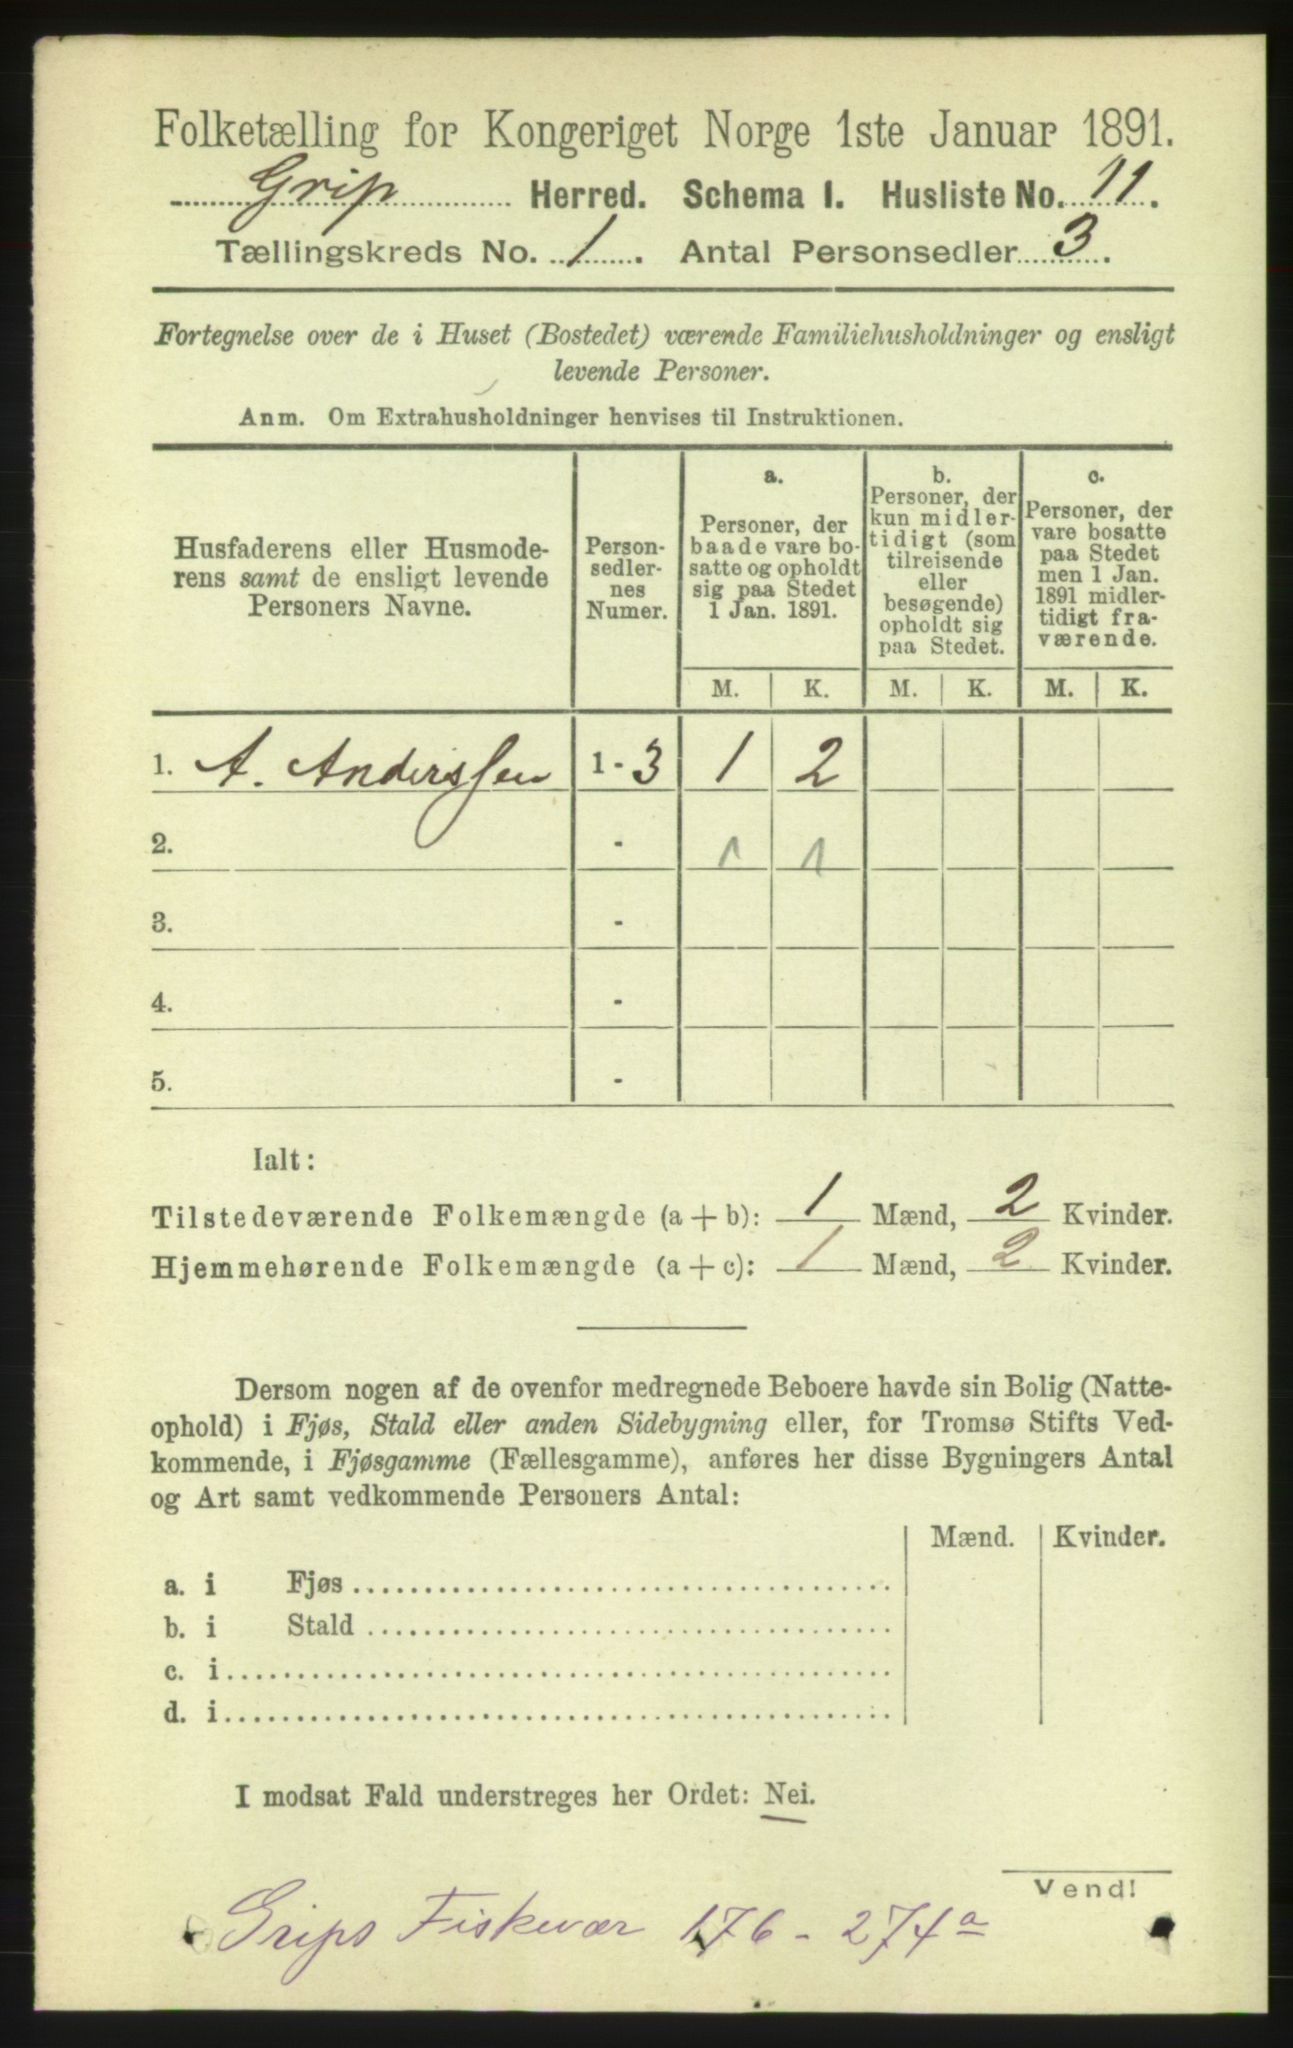 Folketælling for Kongeriget Norge 1ste Januar 1891.
Grip Herred. Schema I. Husliste No. 11.
Tællingskreds No. 1. Antal Personsedler 3.
Fortegnelse over de i Huset (Bostedet) værende Familiehusholdninger og ensligt
levende Personer.
Anm. Om Extrahusholdninger henvises til Instruktionen.
Husfaderens eller Husmode-
rens samt de ensligt levende
Personers Navne.
Person-
sedler-
nes
Numer.
a.
Personer, der
baade vare bo-
satte og opholdt
sig paa Stedet
1 Jan. 1891.
b.
Personer, der
kun midler-
tidigt (som
tilreisende
eller
besøgende)
opholdt sig
paa Stedet.
c.
Personer, der
vare bosatte
paa Stedet
men 1 Jan.
1891 midler-
tidigt fra-
værende.
M. K. M. K. M. K.
1. A. Anderssen 1 - 3 1 2
2. - 1 1
3. -
4. -
5. -
Ialt:
Tilstedeværende Folkemængde (a + b): 1 Mænd, 2 Kvinder.
Hjemmehørende Folkemængde (a + c): 1 Mænd, 2 Kvinder.
Dersom nogen af de ovenfor medregnede Beboere havde sin Bolig (Natte-
ophold) i Fjøs, Stald eller anden Sidebygning eller, for Tromsø Stifts Ved-
kommende, i Fjøsgamme (Fællesgamme), anføres her disse Bygningers Antal
og Art samt vedkommende Personers Antal:
Mænd. Kvinder.
a. i Fjøs
b. i Stald
c. i
d. i
I modsat Fald understreges her Ordet: Nei.
Vend!
Grips Fiskevær 176 - 274a